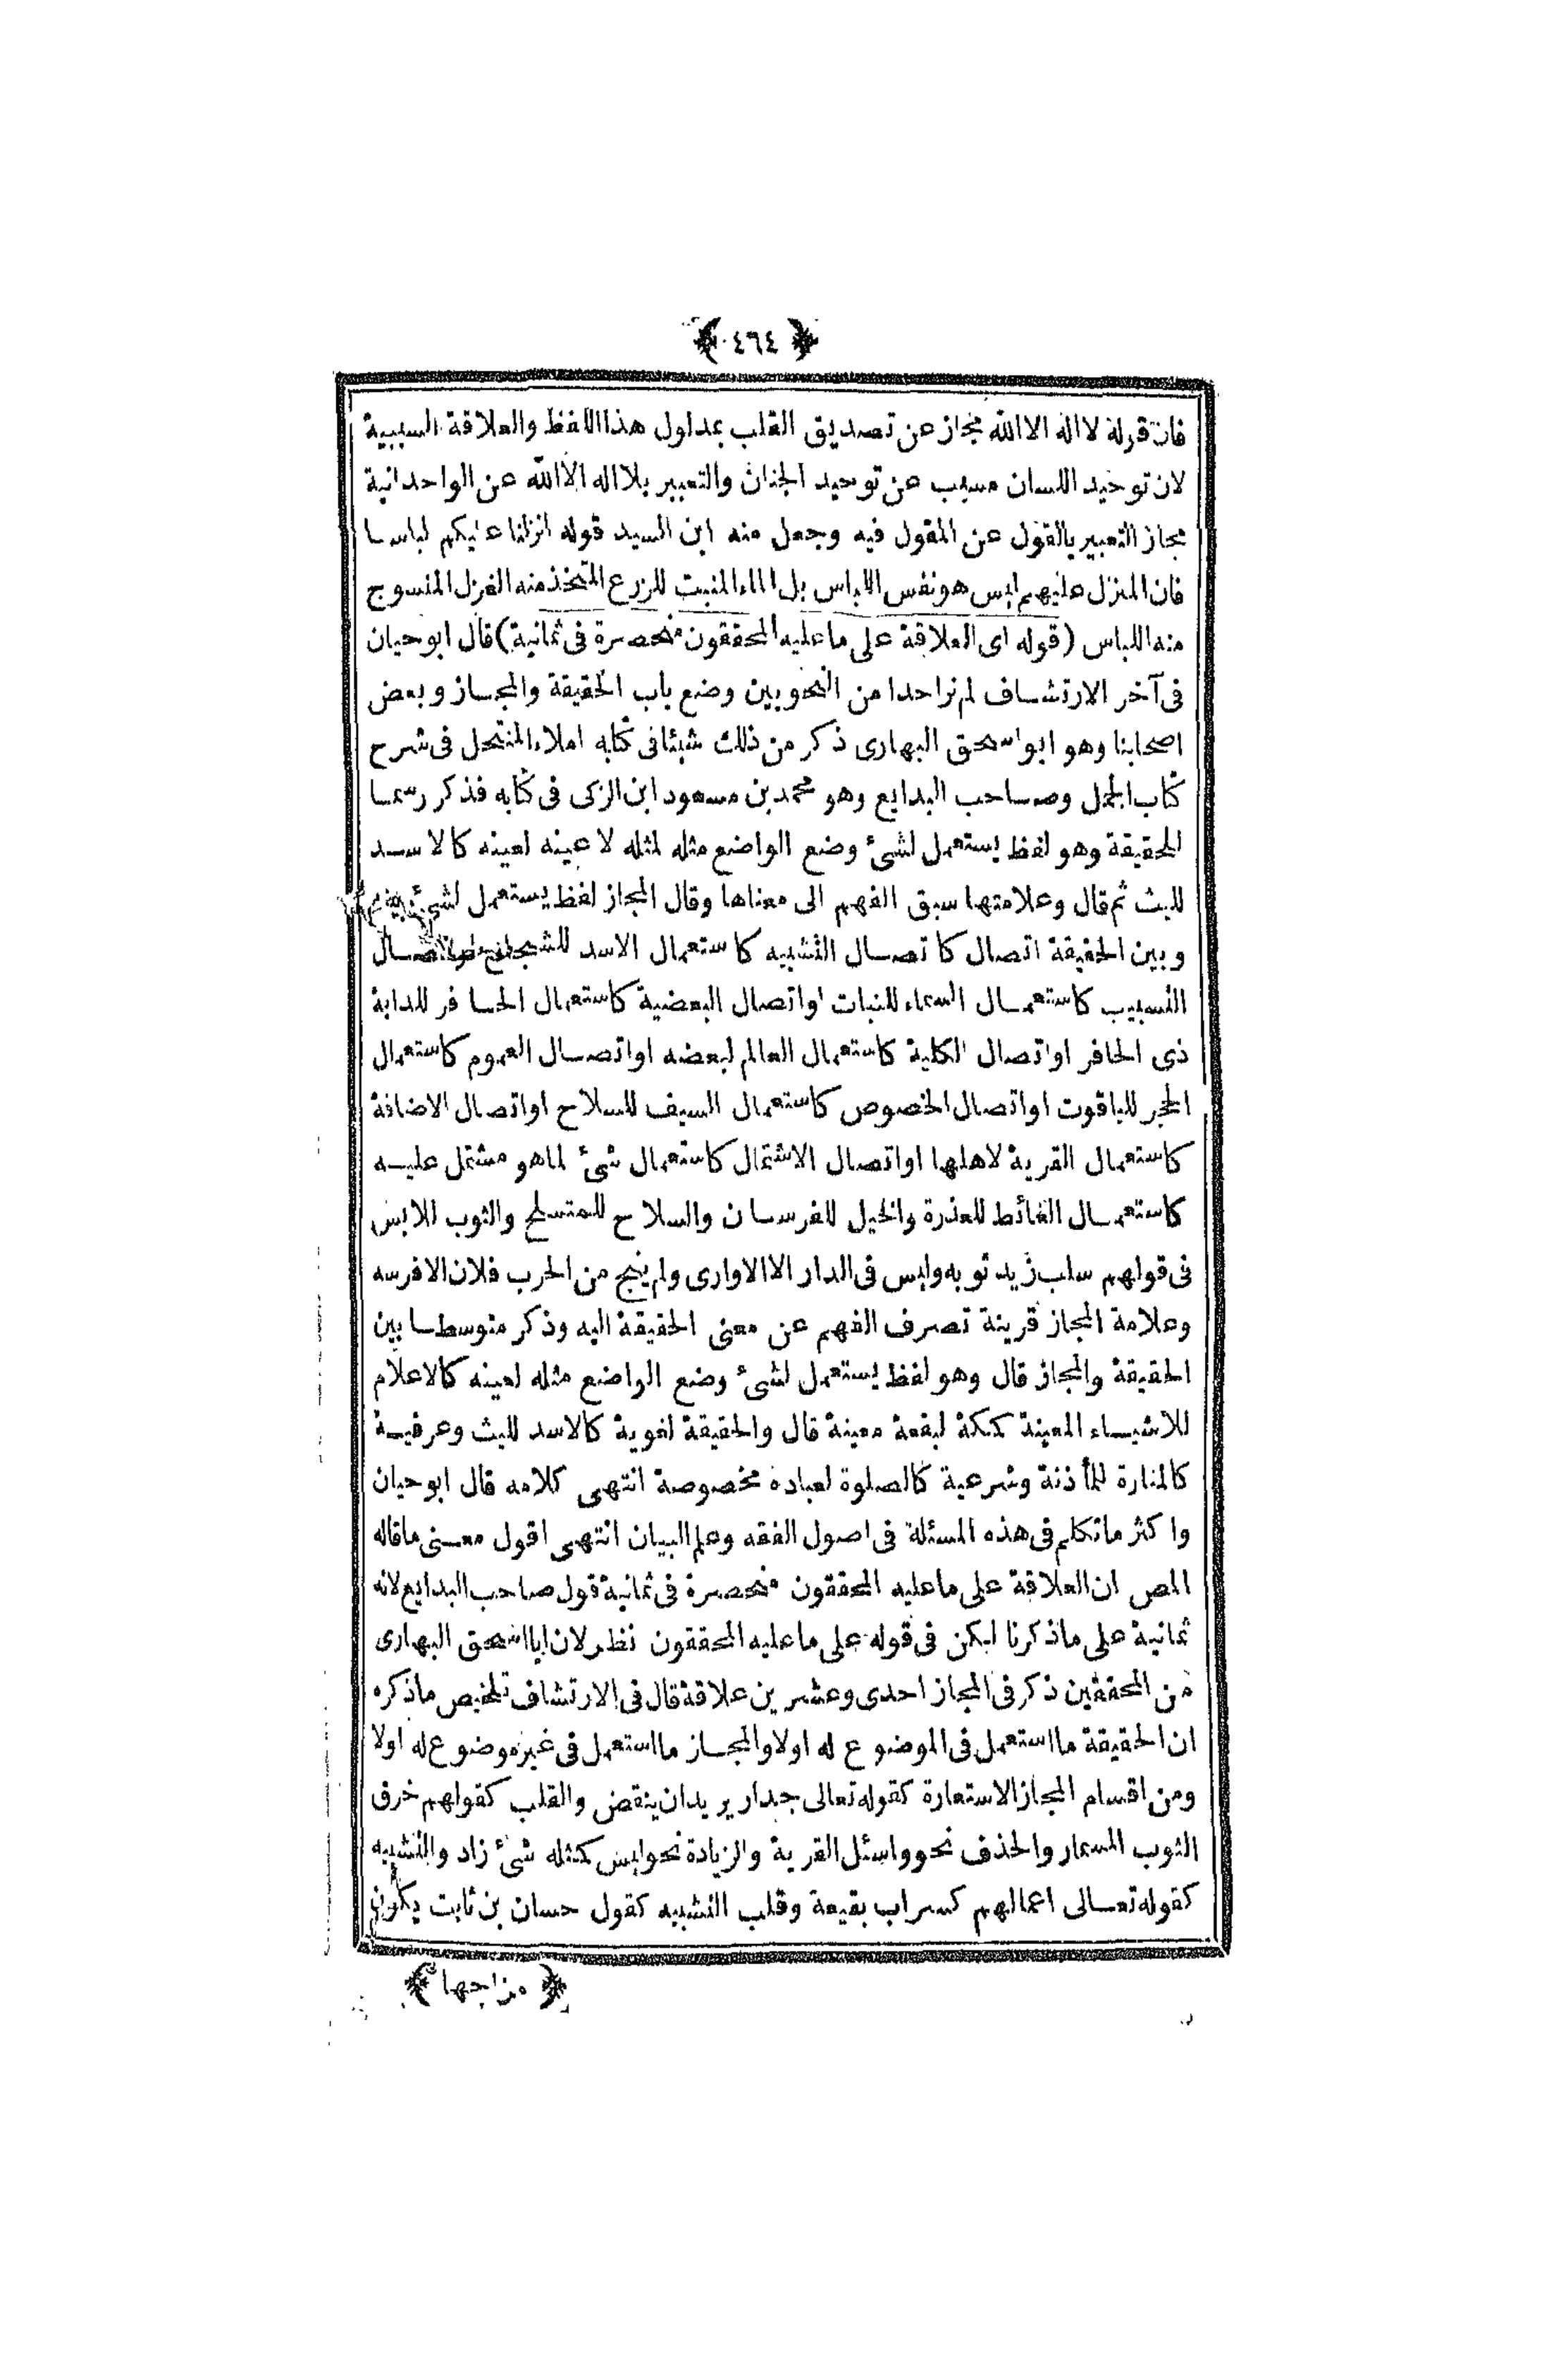 ﴿ ٤٦٤ ﴾
فان قوله لا اله الا الله مجاز عن تصديق القلب بمدلول هذا اللفظ والعلاقة السببية
لان توحيد اللسان مسبب عن توحيد الجنان والتعبير بلا اله الا الله عن الواحدانية
مجاز التعبير بالقول عن المقول فيه وجعل منه ابن السيد قوله انزلنا عليكم لباسا
فان المنزل عليهم ليس هو نفس اللباس بل الماء المنبت للزرع المتخذ منه الغزل المنسوج
منه اللباس (قوله اى العلاقة على ما عليه المحققون منحصرة فى ثمانية) قال ابو حيان
فى آخر الارتشاف لم نر احدا من النحويين وضع باب الحقيقة والمجاز وبعض
اصحابنا وهو ابو اسحق البهارى ذكر من ذلك شيئا فى كتابه املاء المنتحل فى شرح
كتاب الجمل وصاحب البدايع وهو محمد بن مسعود ابن الزكى فى كتابه فذكر رسما
للحقيقة وهو لفظ يستعمل لشئ وضع الواضع مثله لمثله لا عينه لعينه كالاسد
لليث ثم قال وعلامتها سبق الفهم الى معناها وقال المجاز لفظ يستعمل لشئ بينه
وبين الحقيقة اتصال كاتصال التشبيه كاستعمال الاسد للشجاع
التسبيب كاستعمال السماء للنبات او اتصال البعضية كاستعمال الحافر للدابة
ذى الحافر او اتصال الكلية كاستعمال العالم لبعضه او اتصال العموم كاستعمال
الحجر للياقوت او اتصال الخصوص كاستعمال السيف للسلاح او اتصال الاضافة
كاستعمال القرية لاهلها او اتصال الاشتمال كاستعمال شئ لما هو مشتمل عليه
كاستعمال الغائط للعذرة والخيل للفرسان والسلاح للمتسلح والثوب للابس
فى قولهم سلب زيد ثوبه وليس فى الدار الا الاوارى ولم ينج من الحرب فلان الا فرسه
وعلامة المجاز قرينة تصرف الفهم عن معنى الحقيقة اليه وذكر متوسطا بين
الحقيقة والمجاز قال وهو لفظ يستعمل لشئ وضع الواضع مثله لعينه كالاعلام
للاشياء المعينة كمكة لبقعة معينة قال والحقيقة لغوية كالاسد لليث وعرفية
كالمنارة للمأذنة وشرعية كالصلوة لعبادة مخصوصة انتهى كلامه قال ابو حيان
واكثر ما تكلم فى هذه المسئلة فى اصول الفقه وعلم البيان انتهى اقول معنى ما قاله
المص ان العلاقة على ما عليه المحققون منحصرة فى ثمانية قول صاحب البدايع لانه
ثمانية على ما ذكرنا لكن فى قوله على ما عليه المحققون نظر لان ابا اسحق البهارى
من المحققين ذكر فى المجاز احدى وعشرين علاقة قال فى الارتشاف تلخيص ما ذكره
ان الحقيقة ما استعمل فى الموضوع له اولا والمجاز ما استعمل فى غير موضوع له اولا
ومن اقسام المجاز الاستعارة كقوله تعالى جدار يريد ان ينقض والقلب كقولهم خرق
الثوب المسمار والحذف نحو واسئل القرية والزيادة نحو ليس كمثله شئ زاد والتشبيه
كقوله تعالى اعمالهم كسراب بقيعة وقلب التشبيه كقول حسان بن ثابت يكون
﴿ مزاجها ﴾